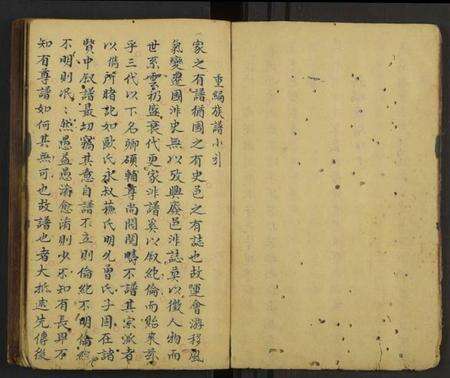 重編族譜小引
家之有譜猶國之有史邑之有誌也故運會游移風
氣變遷國非史無以攷興廢邑非誌莫以徵人物而
世系雲礽盛衰代更家非譜奚以叙紀倫而貽來
乎三代以下名卿碩輔尊尚閥閱疇不譜其宗派者
以偶所睹記如歐氏永叔蘇氏明允曾氏子固在諸
賢中叙譜最切竊其意自譜不立則倫紀不明倫紀
不明則泯泯然愚益愚淆愈淆則少不知有長卑不
知有尊譜如何其無可也故譜也者大抵述先傳後